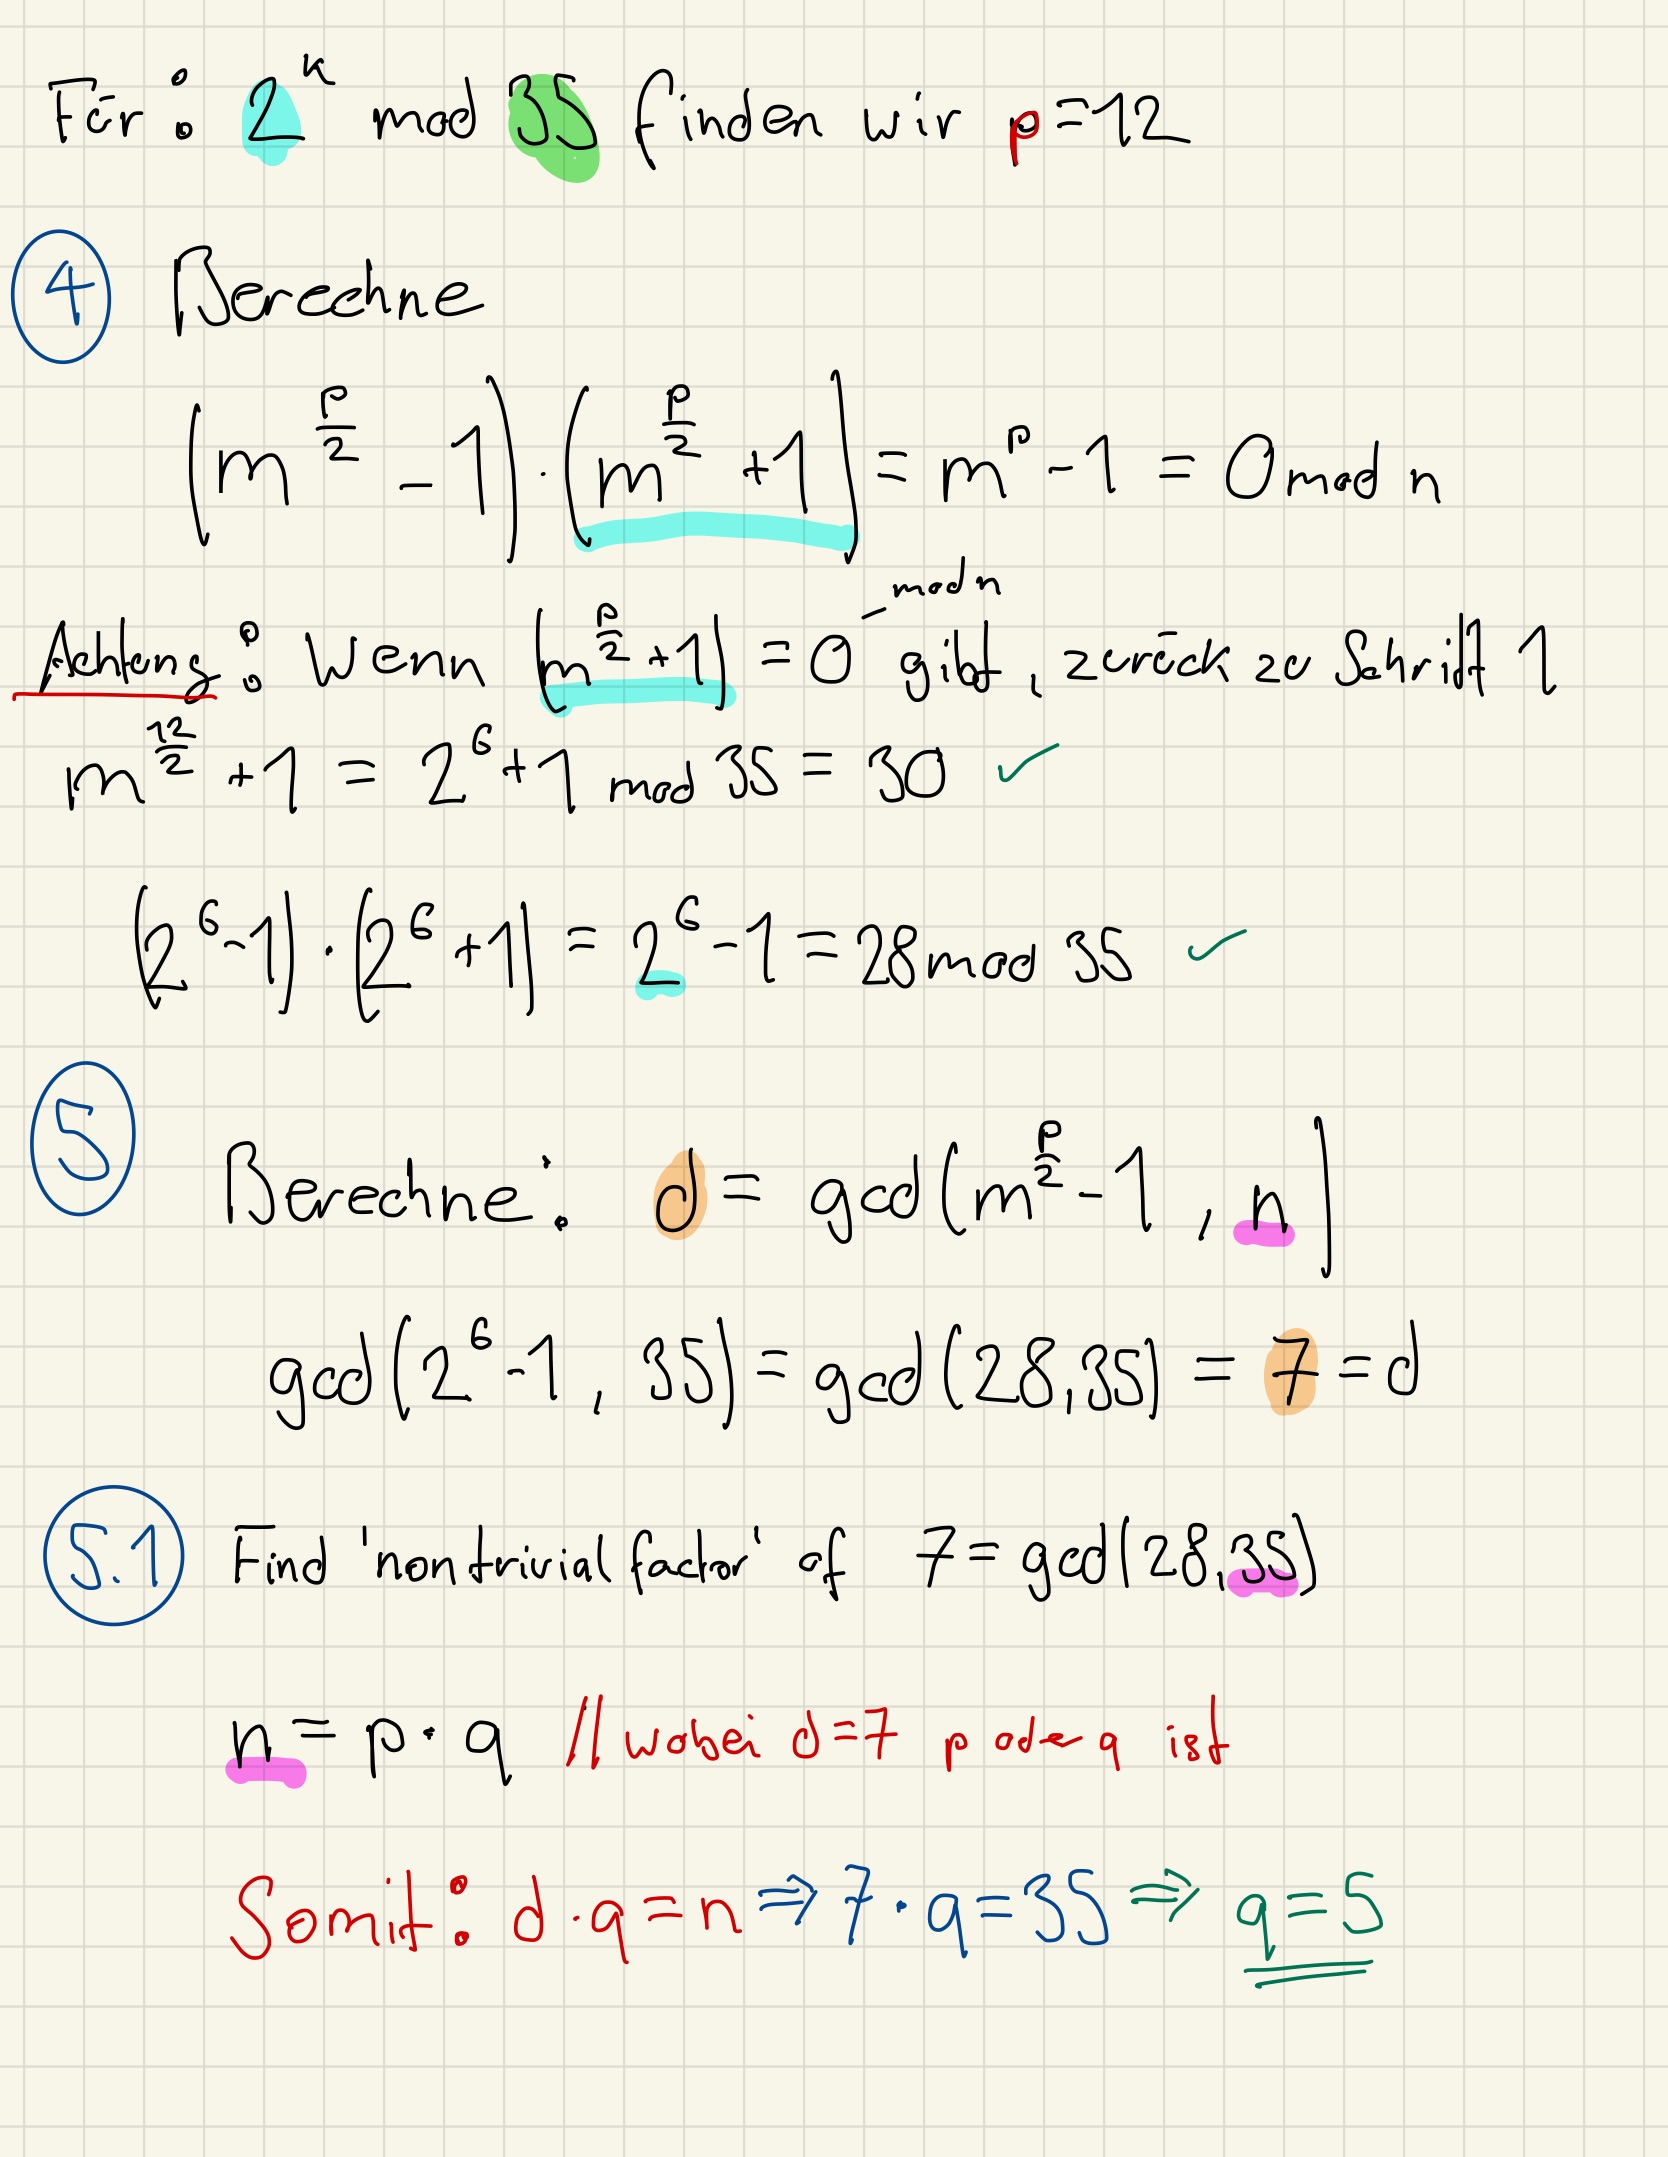 Für: 2^k mod 35 finden wir p=12
4 Berechne
(m^(p/2) - 1) · (m^(p/2) + 1) = m^p - 1 = 0 mod n
Achtung: Wenn (m^(p/2) + 1) = 0 mod n gibt, zurück zu Schritt 1
m^(12/2) + 1 = 2^6 + 1 mod 35 = 30 ✓
(2^6 - 1) · (2^6 + 1) = 2^6 - 1 = 28 mod 35 ✓
5 Berechne: d = gcd(m^(p/2) - 1, n)
gcd(2^6 - 1, 35) = gcd(28,35) = 7 = d
5.1 Find 'nontrivial factor' of 7 = gcd(28,35)
n = p · q // wobei d=7 p oder q ist
Somit: d · q = n ⇒ 7 · q = 35 ⇒ q = 5